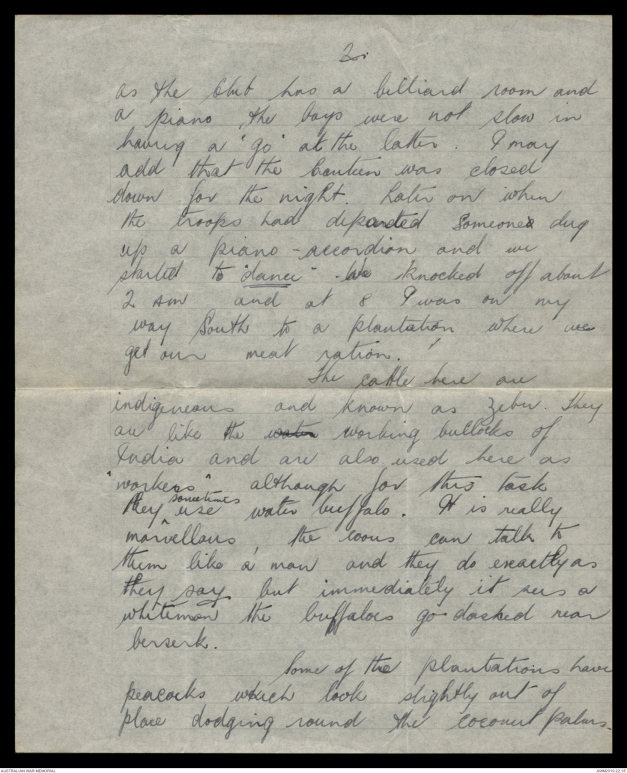 2.
as the Club has a billiard room and
a piano the boys were not slow in
having a "go" at the latter. I may
add that the Canteen was closed
down for the night. Later on when
the troops had departed someone dug
up a piano-accordion and we
started to "dance". We knocked off about
2 am and at 8 I was on my
way South to a plantation where we
get our meat ration.
The cattle here are
indigeneous and known as Zebu. They
are like the water working bullocks of
India and are also used here as
"workers" although for this task
they sometimes use water buffalo. It is really
marvellous the coons can talk to
them like a man and they do exactly as
they say but immediately it sees a
whiteman the buffaloes go dashed near
berserk.
Some of the plantations have
peacocks which look slightly out of
place dodging round the coconut palms.
AUSTRALIAN WAR MEMORIAL